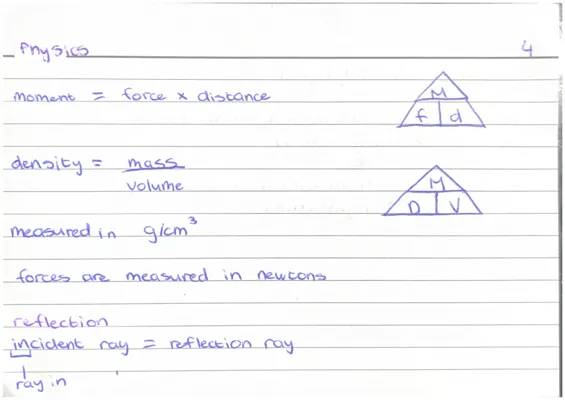 Physics 4
moment = force x distance
M
f d
density = mass
volume
M
D V
measured in g/cm³
forces are measured in newtons
reflection
incident ray = reflection ray
ray in